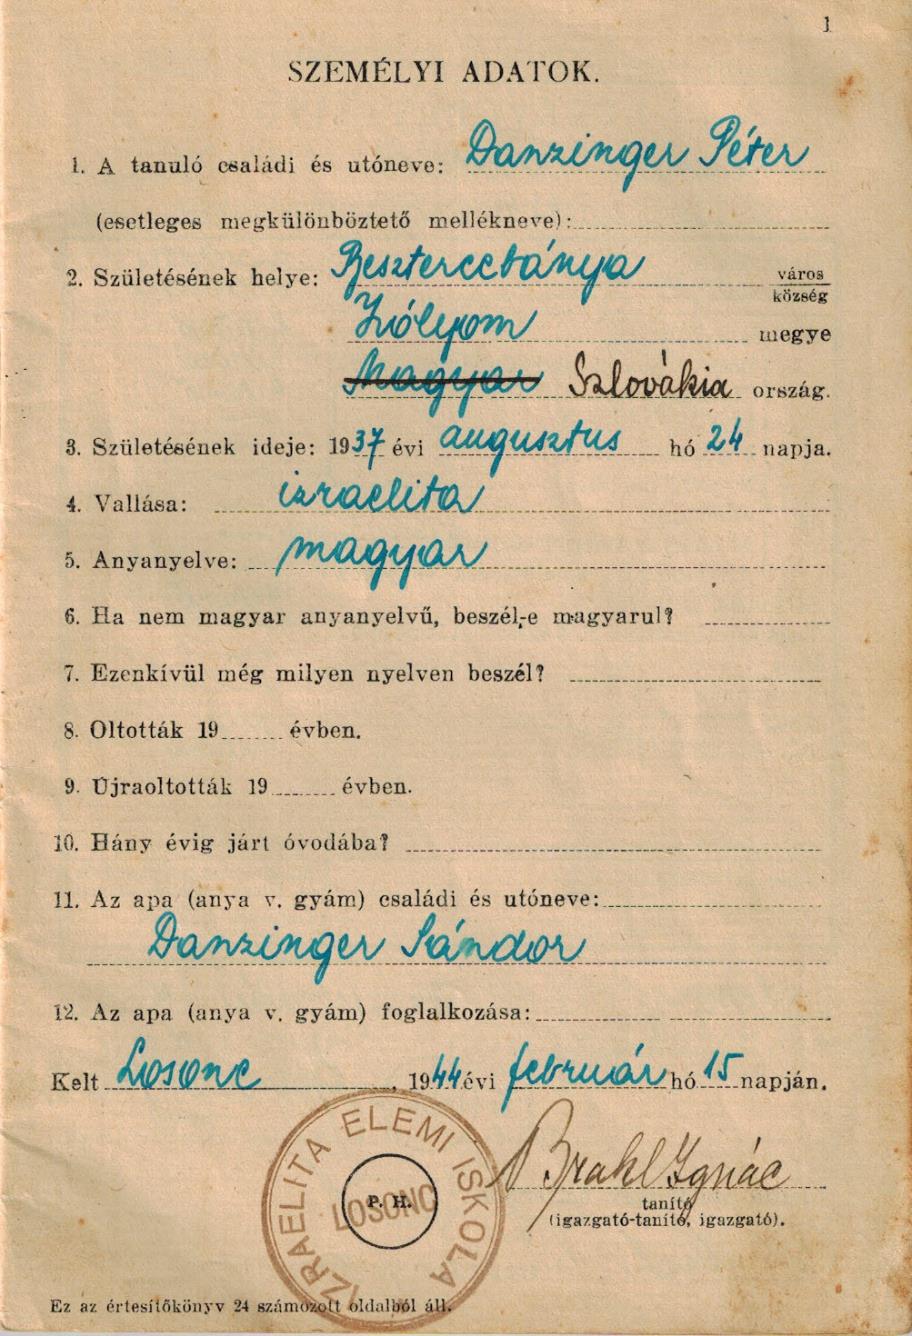 1
SZEMÉLYI ADATOK.
1. A tanuló családi és utóneve: Danzinger Péter
(esetleges megkülönböztető mellékneve):
2. Születésének helye: Besztercebánya város
község
Zólyom megye
Magyar Szlovákia ország.
3. Születésének ideje: 1937 évi augusztus hó 24 napja.
4. Vallása: izraelita
5. Anyanyelve: magyar
6. Ha nem magyar anyanyelvű, beszél-e magyarul?
7. Ezenkívül még milyen nyelven beszél?
8. Oltották 19 évben.
9. Újraoltották 19 évben.
10. Hány évig járt óvodába?
11. Az apa (anya v. gyám) családi és utóneve:
Danzinger Sándor
12. Az apa (anya v. gyám) foglalkozása:
Kelt Losonc, 1944 évi február hó 15 napján.
IZRAELITA ELEMI ISKOLA
LOSONC
P. H.
Ignác
tanító
(igazgató-tanító, igazgató).
Ez az értesítőkönyv 24 számozott oldalból áll.